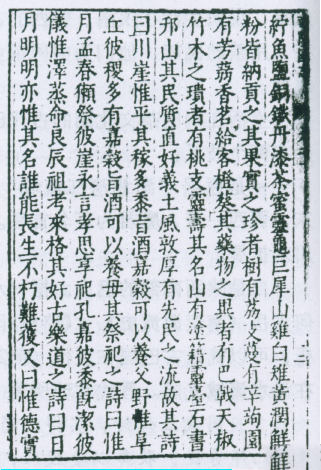 紵魚鹽銅鐵丹漆茶蜜靈龜巨犀山雞白雉黃潤鮮鮮
粉皆納貢之其果實之珍者樹有荔支蔓有辛蒟園
有芳蒻香茗給客橙葵其藥物之異者有巴戟天椒
竹木之璝者有桃支靈壽其名山有塗籍靈臺石書
刋山其民質直好義土風敦厚有先民之流故其詩
曰川崖惟平其稼多黍旨酒嘉穀可以養父野惟阜
丘彼稷多有嘉穀旨酒可以養母其祭祀之詩曰惟
月孟春獺祭彼崖永言孝思享祀孔嘉彼黍既潔彼
儀惟澤蒸命良辰祖考來格其好古樂道之詩曰日
月明明亦惟其名誰能長生不朽難獲又曰惟德實